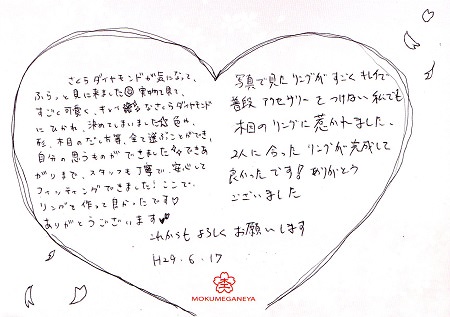 さくらダイヤモンドが気になって、
ふらっと見に来ました 実物を見て、
すごく可愛く、キレイなさくらダイヤモンド
にひかれ、決めてしまいました 色や、
形、木目のだし方等、全て選ぶことができ、
自分の思うものができました でき
あがりまで、スタッフも丁寧で、安心して
フィッティングできました！ここで、
リングを作って良かったです♡
ありがとうございます
写真で見たリングがすごくキレイで
普段アクセサリーをつけない私でも
木目のリングに惹かれました。
2人に合ったリングが完成して
良かったです！ありがとう
ございました
これからもよろしくお願いします
H29.6.17
MOKUMEGANEYA